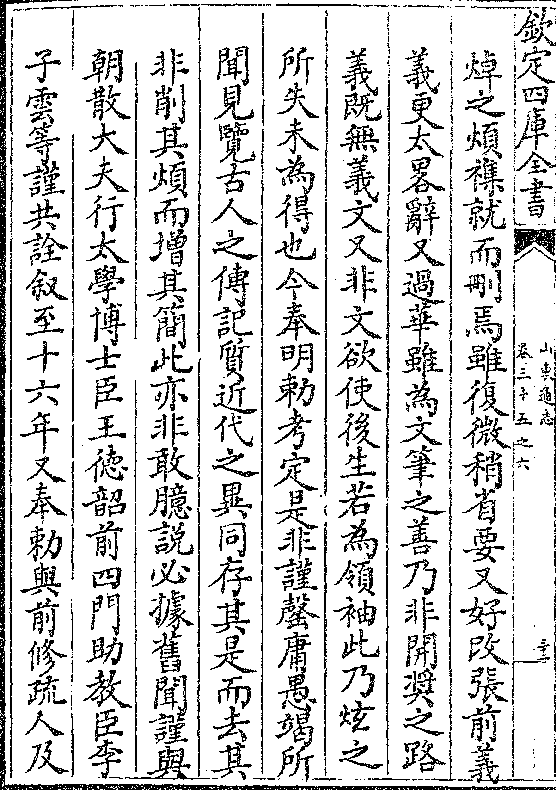 欽定四庫全書
山東通志
卷三十五之六
焯之煩雜就而刪焉雖復微稍省要又好改張前義
義更太畧辭又過華雖為文筆之善乃非開奬之路
義既無義文又非文欲使後生若為領袖此乃炫之
所失未為得也今奉明勅考定是非謹罄庸愚竭所
聞見覽古人之傳記質近代之異同存其是而去其
非削其煩而增其簡此亦非敢臆説必據舊聞謹與
朝散大夫行太學博士臣王德韶前四門助教臣李
子雲等謹共詮叙至十六年又奉勅與前修疏人及